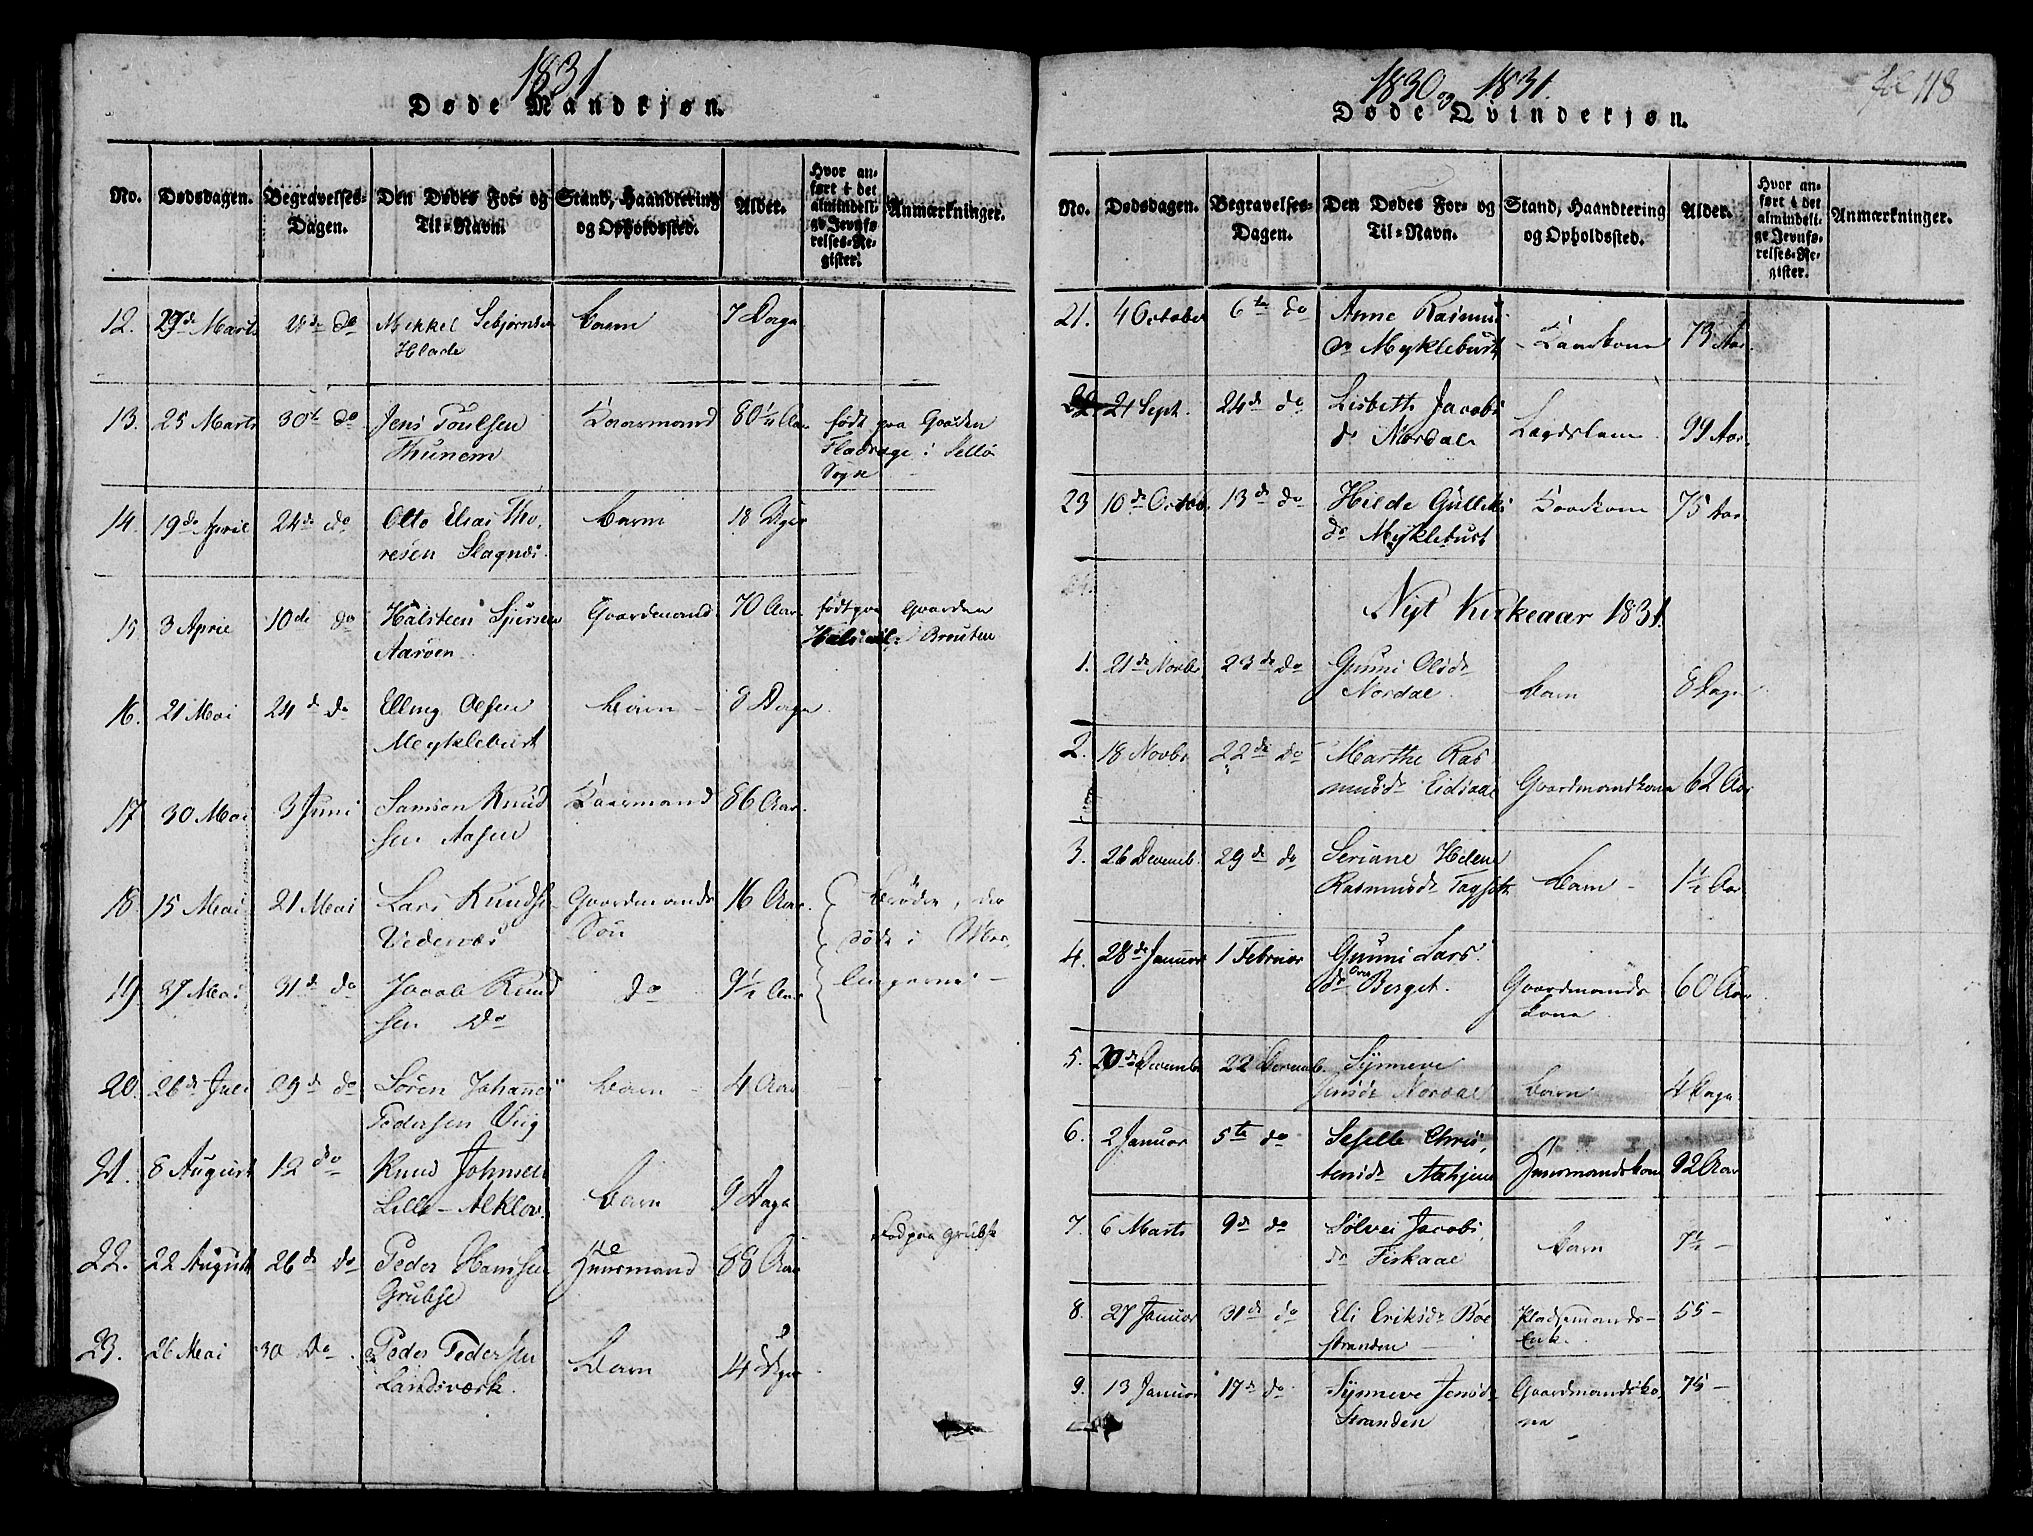 1831
Døde Mandkjøn.
No.
Dødsdagen.
Begravelses-
Dagen.
Den Dødes For- og
Til-Navn.
Stand, Haandtering
og Opholdssted.
Alder.
Hvor an-
ført i det
almindeli-
ge Jevnfø-
relses-Re-
gister.
Anmærkninger.
12. 29de Marts do Mekkel Sebjørnsen Barn 7 Dage
Hlade
13. 25 Marts 30te do Jens Poulsen Kaarmand 80 1/4 Aar født paa Gaarden
Thunem i Sellø
Sogn
14. 19de April 24de do Otto Elias Tho-
resen Slagnæs Barn 18 Dage
15 3 April 10de do Halsteen Sjursen Gaardmand 70 Aar født paa Gaarden
Aarøen
16. 21 Mai 24de do Elling Olsen Barn 8 Dage
Myklebust
17 30 Mai 3 Juni Samson Knud Kaarmand 86 Aar
sen Aasen
18 15 Mai 21 Mai Lars Knudse Gaardmands 16 Aar Brødre, der
Vedenæs Søn døde i Mæs-
19 27 Mai 31de do Jacob Knud do 9 1/2 Aar lingerne
sen do
20. 26de Juli 29de do Søren Johannes Barn 4 Aar
Pedersen Viig
21. 8 August 12 do Knud Johnsen
Lille-Alklov. Barn 9 Dage
22. 22 August 26de do Peder Hansen Huusmand 88 Aar Fød paa Grubse
Grubse
23. 26 Mai 30 do Peder Pedersen Barn 14 Dage
Landsværk.
1830 og 1831.
fol 118
Døde Qvindekjøn.
No.
Dødsdagen.
Begravelses-
Dagen.
Den Dødes For- og
Til-Navn.
Stand, Haandtering
og Opholdssted.
Alder.
Hvor an-
ført i det
almindeli-
ge Jevnfø-
relses-Re-
gister.
Anmærkninger.
21. 4 October 6te do Anne Rasmus
dr Myklebust Kaarkone 73 Aar
22. 21 Sept. 24de do Lisbeth Jacobs
dr Nordal Lægdslem 99 Aar
23 10de Octob. 13de do Hilde Gulliks Kaarkone 75 Aar
dr Myklebust
Nyt Kirkeaar 1831.
1. 21de Novbr 23de do Gunni Olsdr
Nordal. Barn 8 Dage
2. 18 Novbr 22de do Marthe Ras
musdr Eidsaae Gaardmandkone 62 Aar
3. 26 Decemb. 29de do Seriane Helene
Rasmusdr Barn 1 1/2 Aar
4. 28de Januar 1 Februar Gunni Lars
dr Berget. Gaardmands 60 Aar
kone
5. 20de Decemb. 22 Decemb. Synneve
Jensdr Nordal Barn 4 Dage
6. 2 Januar 5te do Seselle Chris-
tensdr Huusmandskone 92 Aar
7. 6 Marts 9de do Sølvei Jacobs
dr Fiskaae Barn 7 1/2
8. 27 Januar 31de do Eli Eriksdr Bøe Pladsemands- 55
stranden Enke.
9. 13 Januar 17de do Synneve Jensdr Gaardmandsko- 75
Stranden ne